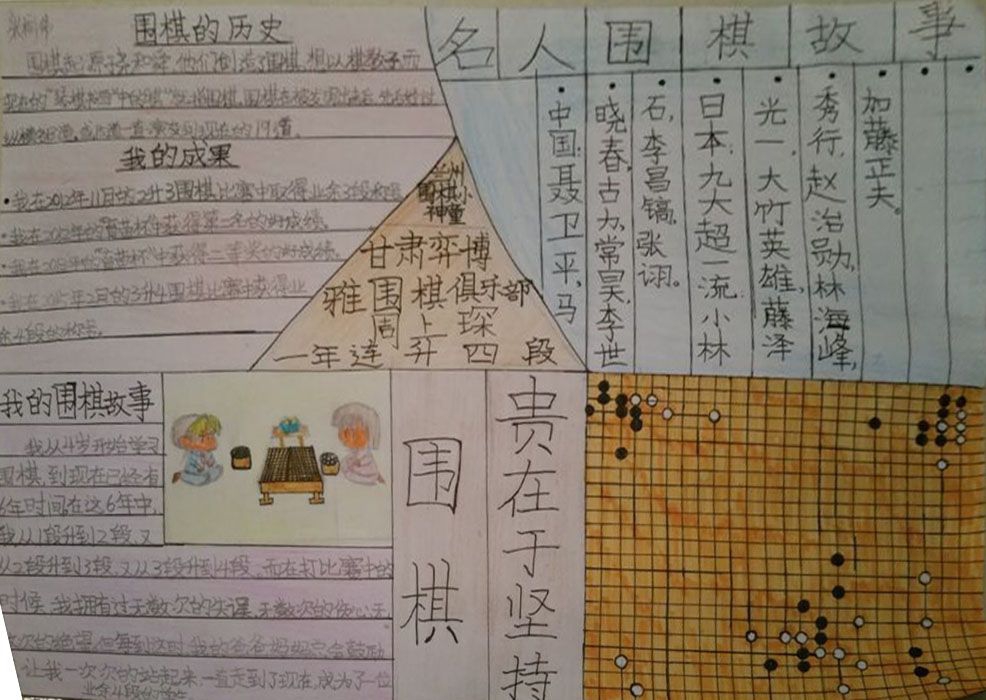 围棋的历史
围棋起源于尧和舜,他们创造了围棋,想以棋教子而
纵横 道,
一直演变到现在的19道。
我的成果
•我在2012年11月的2升3围棋比赛中取得业余3段称号
•我在2013年的"
杯"中获得第一名的好成绩。
•我在2014年的"
杯"中获得二等奖的好成绩。
•我在2015年2月的3升4围棋比赛中获得业
余4段的称号。
兰州
围棋小
神童
甘肃弈博
雅围棋俱乐部
周上琛
一年连升四段
名人围棋故事
•中国:聂卫平,马
•晓春,古力,常昊,李世
•石,李昌镐,张诩。
•日本:九大超一流:小林
•光一,大竹英雄,藤泽
•秀行,赵治勋,林海峰,
•加藤正夫。
我的围棋故事
我从4岁开始学习
围棋,到现在已经有
6年时间,在这6年中,
我从1段升到2段,又
从2段升到3段,又从3段升到4段,而在打比赛中的
时候,我拥有过无数次的失误,无数次的伤心,无
数次的绝望,但每到这时,我的爸爸妈妈会鼓励
让我一次次的站起来,一直走到了现在,成为了一位
业余4段的
围棋
贵在于坚持